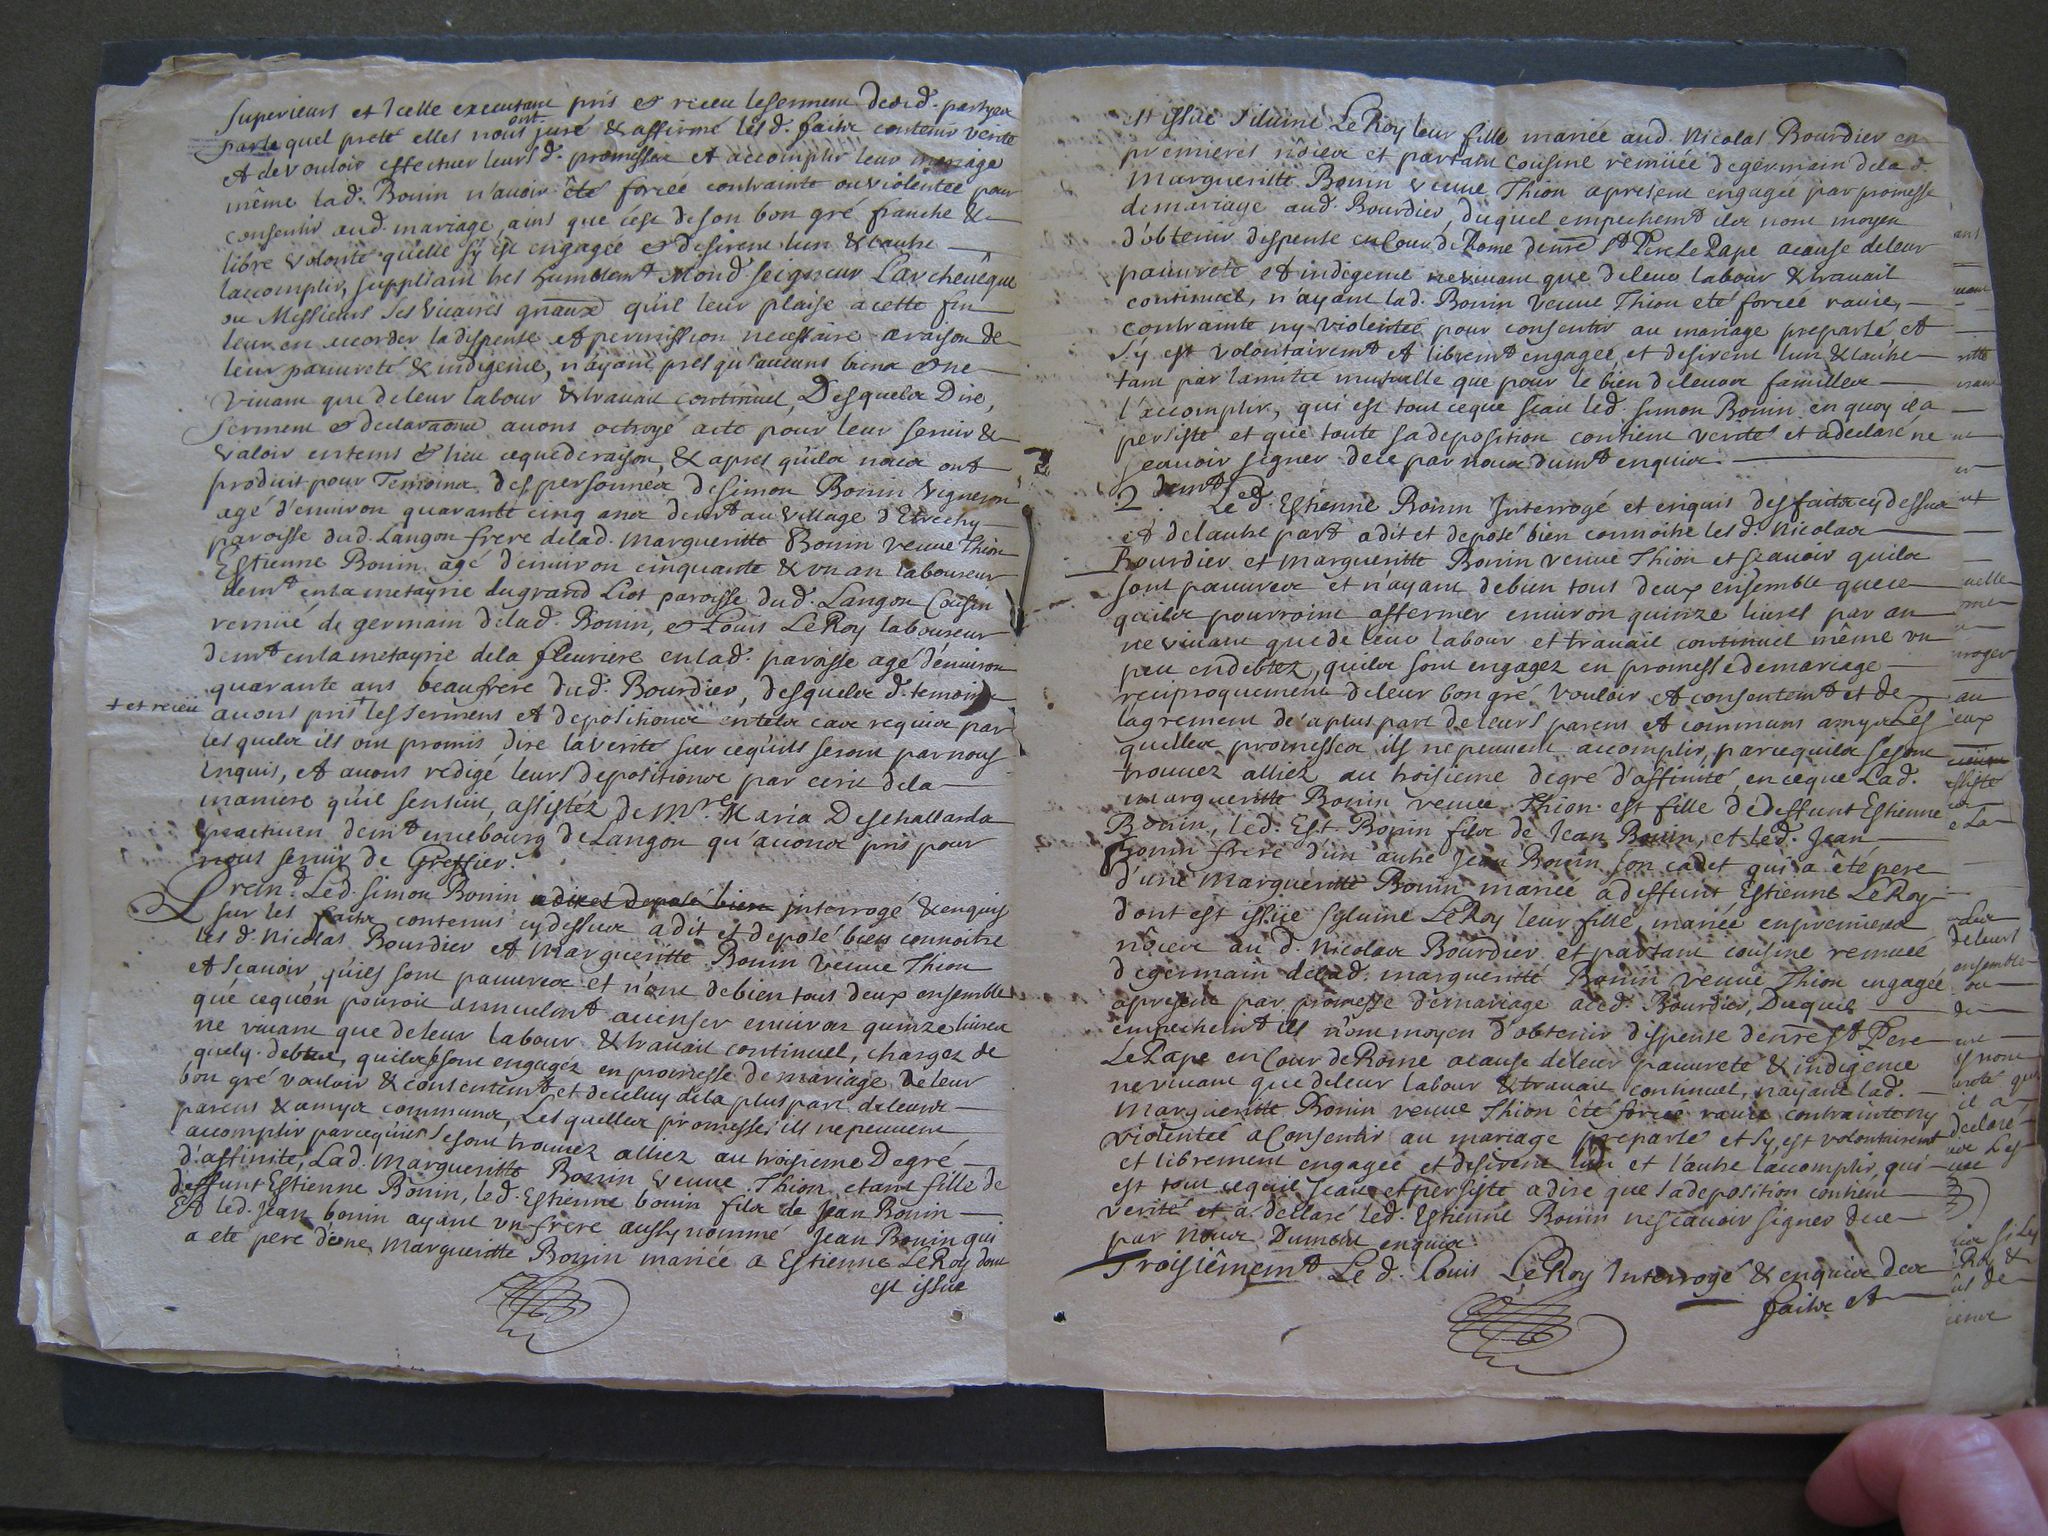 superieurs et Icelle executant pris et receu leserment desd. partyes
parlequel preté elles nous ont juré & affirmé lesd. faits contenir verité
et devouloir effectuer leursd. promesses et accomplir leur mariage
même lad. Bonin n'avoir êté forcée contrainte ou violentée pour
consentir aud. mariage, ains que c'est deson bon gré franche &
libre volonté qu'elle s'y est engagée et desirent lun & lautre
laccomplir, suppliant tres humblemt. Mond. seigneur L'archevêque
ou Messieurs ses vicaires gñaux qu'il leur plaise acette fin
leur en accorder la dispense et permission necessaire araison de
leur pauvreté & indigence, n'ayant presqu'aucuns biens et ne
vivant que deleur labour & travail continuel, Desquels Dire,
serment et declarãons avons octroyé acte pour leur servir &
valoir en tems & lieu cequederaison, & apres qu'ils nous ont
produit pour Temoins des personnes desimon Bonin vigneron
agé d'environ quarante cinq ans demt. au village d'Etrechy
paroisse dud. Langon frere delad. Margueritte Bonin veuve Thion
Estienne Bonin agé d'environ cinquante & un an laboureur
demt. en la metayrie du grand Liot paroisse dud. Langon Cousin
remüé de germain delad. Bonin, et Louis LeRoy laboureur
demt. en la metayrie dela fleuriere en lad. paroisse agé d'environ
quarante ans beaufrere dud. Bourdier, desquels d. temoins
+ et receu
avons pris + les sermens et depositions en tels cas requis par
lesquels ils ont promis dire la verité sur cequ'ils seront par nous
Inquis, et avons redigé leurs depositions par ecrit dela
maniere qu'il sensuit, assistéz de Mre. Maria Deschallards
practicien demt. en cebourg de Langon qu'avons pris pour
nous servir de Greffier.
Premt. Led. simon Bonin a dit et deposé bien interrogé & enquis
sur les faits contenus cydessus a dit et deposé bien connoitre
les d. Nicolas Bourdier et Margueritte Bonin veuve Thion
et scavoir qu'ils sont pauvres et n'ont debien tous deux ensemble
que cequ'on pouroit annuelmt. accenser environ quinze livres
ne vivant que deleur labour & travail continuel, chargez de
quelq. debtes, qu'ils se sont engagéz en promesse de mariage deleur
bon gré vouloir & consentemt. et deceluy dela pluspart deleurs
parens & amys communs, Lesquelles promesses ils nepeuvent
accomplir parcequ'ils se sont trouvez alliez au troisieme Degré
d'affinité, Lad. Margueritte Bonin veuve Thion etant fille de
deffunt Estienne Bonin, led. Estienne bonin fils de Jean Bonin
Et led. Jean bonin ayant un frere aussy nommé Jean Bonin qui
a eté pere d'une Margueritte Bonin mariée a Estienne LeRoy dont
est issüe
est issüe silvine LeRoy leur fille mariée aud. Nicolas Bourdier en
premieres nôces et partant Cousine remüée degermain dela d.
Margueritte Bonin veuve Thion apresent engagée par promesse
demariage aud. Bourdier, duquel empechemt. ils n'ont moyen
d'obtenir dispense en Cour de Rome denr̃e St. Pere Le Pape acause deleur
pauvreté et indigence nevivant que deleur labour & travail
continuel, n'ayant lad. Bonin veuve Thion eté forcée ravie,
contrainte ny violentée pour consentir au mariage preparlé et
s'y est volontairemt. et libremt. engagée, et desirent lun & lautre
tant par lamitié mutuelle que pour le bien deleurs familles
l'accomplir, qui est tout ceque scait led. simon Bonin en quoy il a
persisté et que toute sa deposition contient verité et a declaré ne
scavoir signer dece par nous dumt. enquis.
2 demt. Led. Estienne Bonin Interrogé et enquis des faits cydessus
et delautre part a dit et deposé bien connoitre les d. Nicolas
Bourdier et Margueritte Bonin veuve Thion et scavoir quils
sont pauvres et n'ayant debien tous deux ensemble quece
quils pourroint affermer environ quinze livres par an
ne vivant que de leur labour et travail continuel même un
peu endebtez, quils sont engagez en promesse demariage
reciproquement deleur bon gré vouloir et consentemt. et de
lagrement de la pluspart de leurs parens et communs amys Les
quelles promesses ils nepeuvent accomplir, parcequils sesont
trouvez alliéz au troisieme degré d'affinité, en ceque Lad.
Margueritte Bonin veuve Thion est fille de deffunt Estienne
Bonin, led. Est. Bonin fils de Jean Bonin, et led. Jean
Bonin frere d'un autre Jean Bonin son cadet qui a êté pere
d'une Margueritte Bonin mariée adeffunt Estienne LeRoy
dont est issüe Sylvine LeRoy leur fille mariée enpremieres
nôces au d. Nicolas Bourdier et partant cousine remuée
degermain delad. margueritte Bonin veuve Thion engagée
apresent par promesse de mariage aud. Bourdier, Duquel
empechemt. ils n'ont moyen d'obtenir dispense denr̃e St. Pere
LePape en Cour deRome acause deleur pauvreté & indigence
nevivant que deleur labour & travail continuel, nayant lad.
Margueritte Bonin veuve Thion êté forcée ravie contrainte ny
violentée aConsentir au mariage preparlé et s'y est volontairemt
et librement engagée et desirent lun et l'autre laccomplir, qui
est tout cequil scait et persiste a dire que sa deposition contient
verité et a declaré led. Estienne Bonin nescavoir signer dece
par nous Dument enquis.
Troisiêmemt. Le d. Louis LeRoy Interrogé & enquis des
faits et